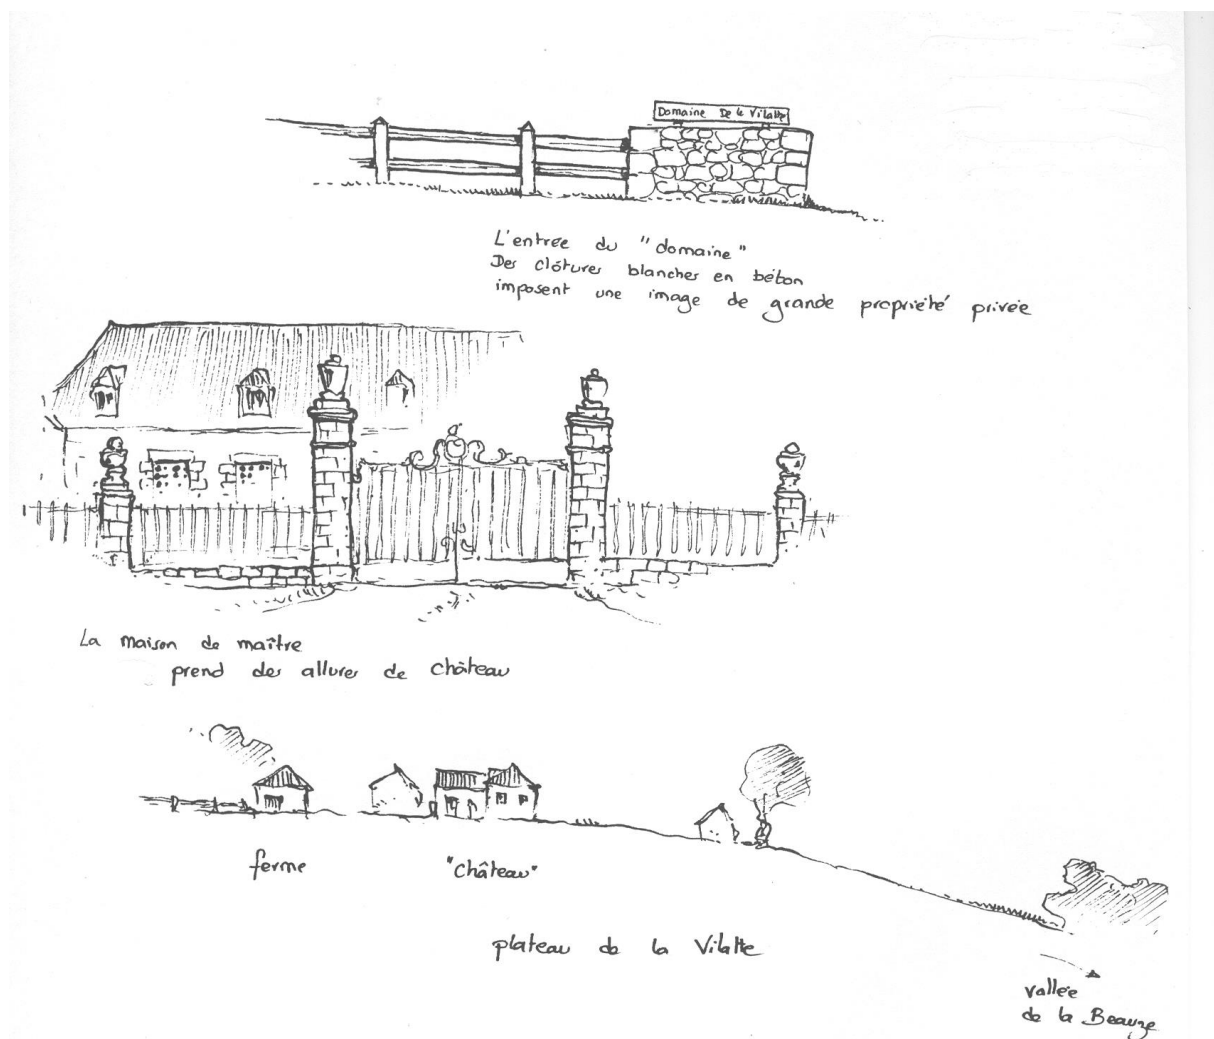 Domaine De la Vilatte
L'entrée du "domaine"
Des clôtures blanches en béton
imposent une image de grande propriété privée
La maison de maître
prend des allures de château
ferme
"Château"
plateau de la Vilatte
vallée
de la Beauze